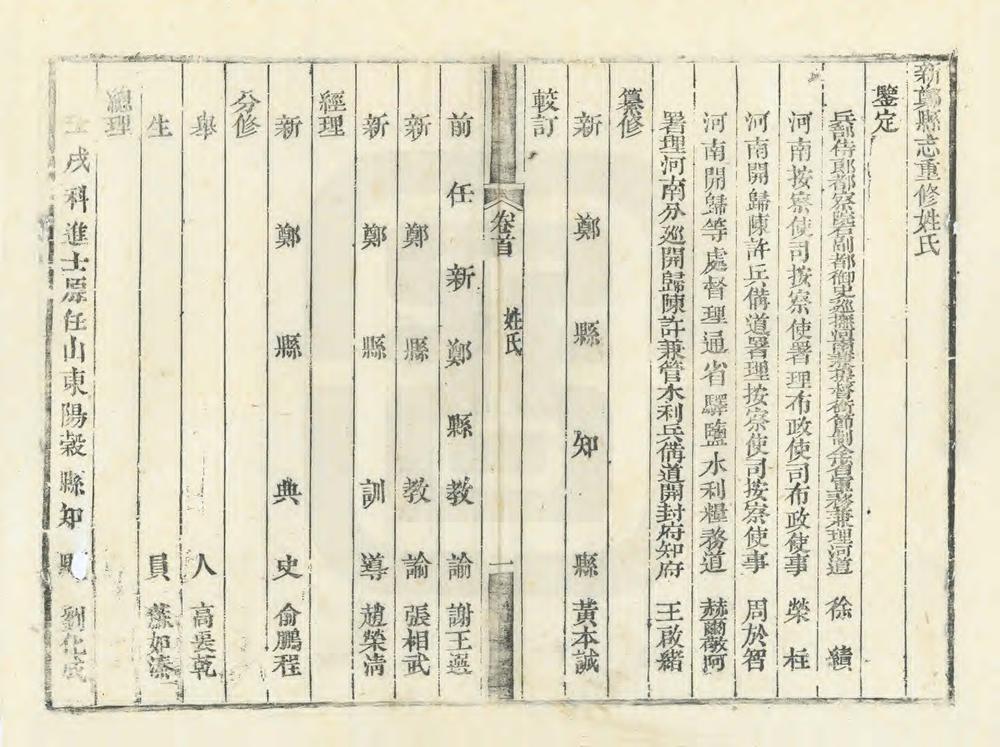 新鄭縣志重修姓氏
鑒定
兵部侍郎都察院右副都御史巡撫河南兼提督銜節制全省軍務兼理河道 徐績
河南按察使司按察使署理布政使司布政使事 榮柱
河南開歸陳許兵備道署理按察使司按察使事 周於智
河南開歸等處督理通省驛鹽水利糧務道 赫爾敬阿
署理河南分巡開歸陳許兼管水利兵備道開封府知府 王啟緒
纂修
新鄭縣知縣 黃本誠
較訂
卷首 姓氏 一
前任新鄭縣教諭 謝王選
新鄭縣教諭 張相武
新鄭縣訓導 趙榮清
經理
新鄭縣典史 俞鵬程
分修
舉人 高裴乾
生員 蘇如溱
總理
戌科進士原任山東陽穀縣知縣 劉化成